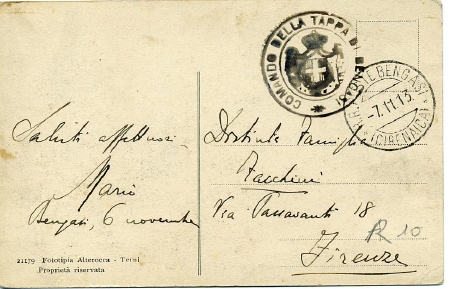 COMANDO DELLA TAPPA DI BENGASI
BENGASI
-7.11.13
(CIRENAICA)
Saluti affettuosi
Mario
Bengasi, 6 novembre
Distinta Famiglia
Facchini
Via Passavanti 18
Firenze
R 10
21179 Fototipia Alterocca - Terni
Proprietà riservata